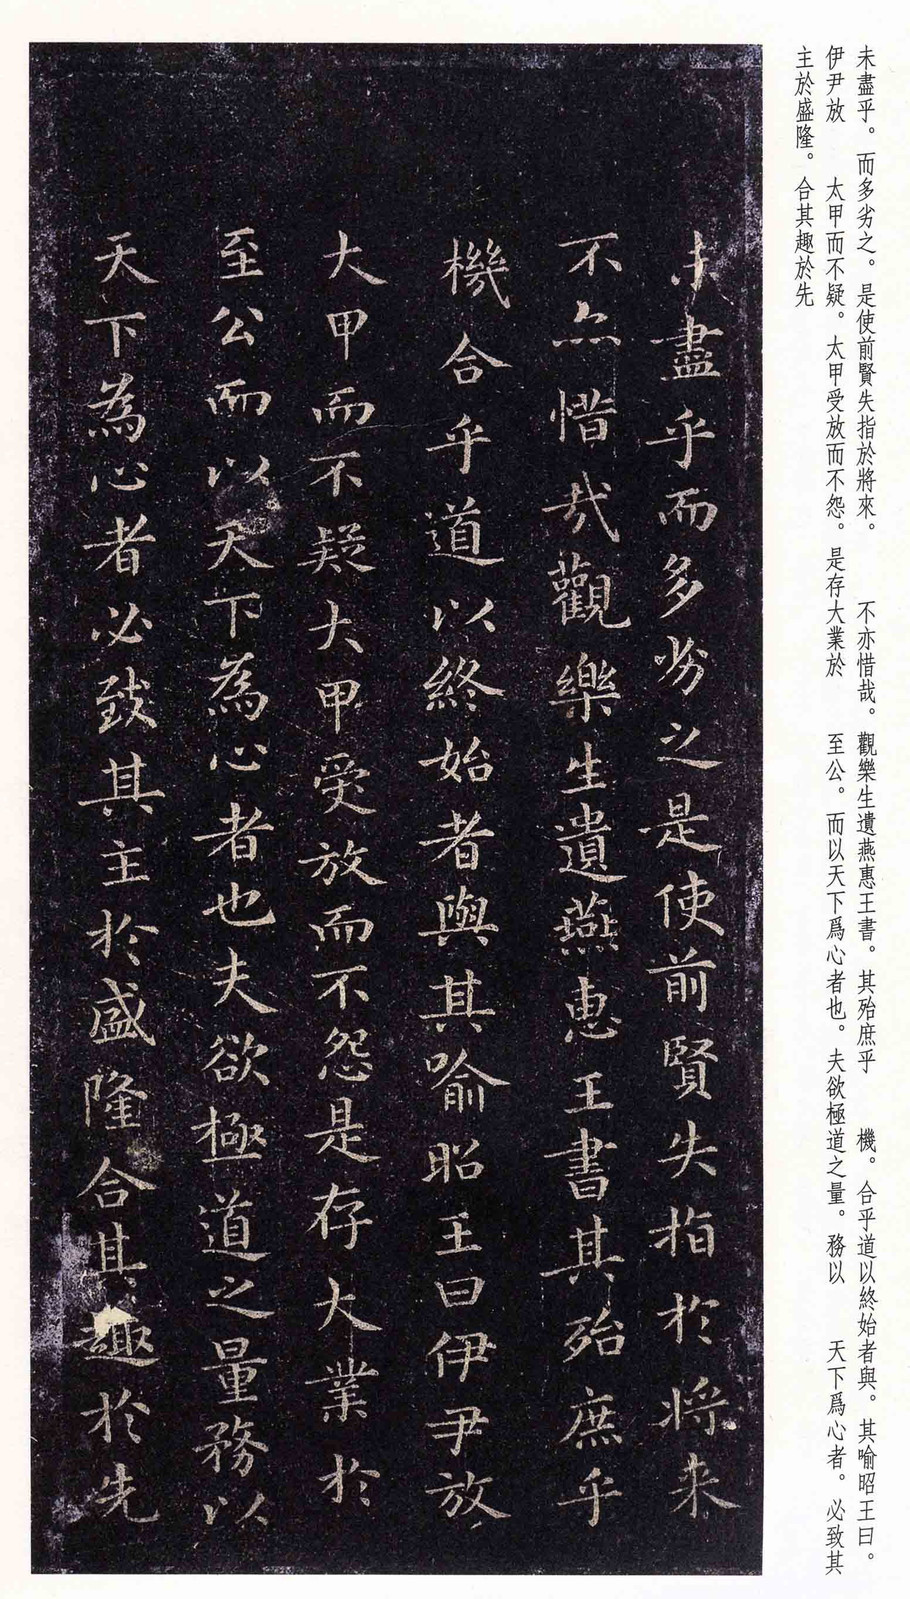 未盡乎。而多劣之。是使前賢失指於將來。　不亦惜哉。觀樂生遺燕惠王書。其殆庶乎　機。合乎道以終始者與。其喻昭王曰。
伊尹放　太甲而不疑。太甲受放而不怨。是存大業於　至公。而以天下爲心者也。夫欲極道之量。務以　天下爲心者。必致其
主於盛隆。合其趣於先
未盡乎而多劣之是使前賢失指於將来
不亦惜哉觀樂生遺燕惠王書其殆庶乎
機合乎道以終始者與其喻昭王曰伊尹放
大甲而不疑大甲受放而不怨是存大業於
至公而以天下為心者也夫欲極道之量務以
天下為心者必致其主於盛隆合其趣於先